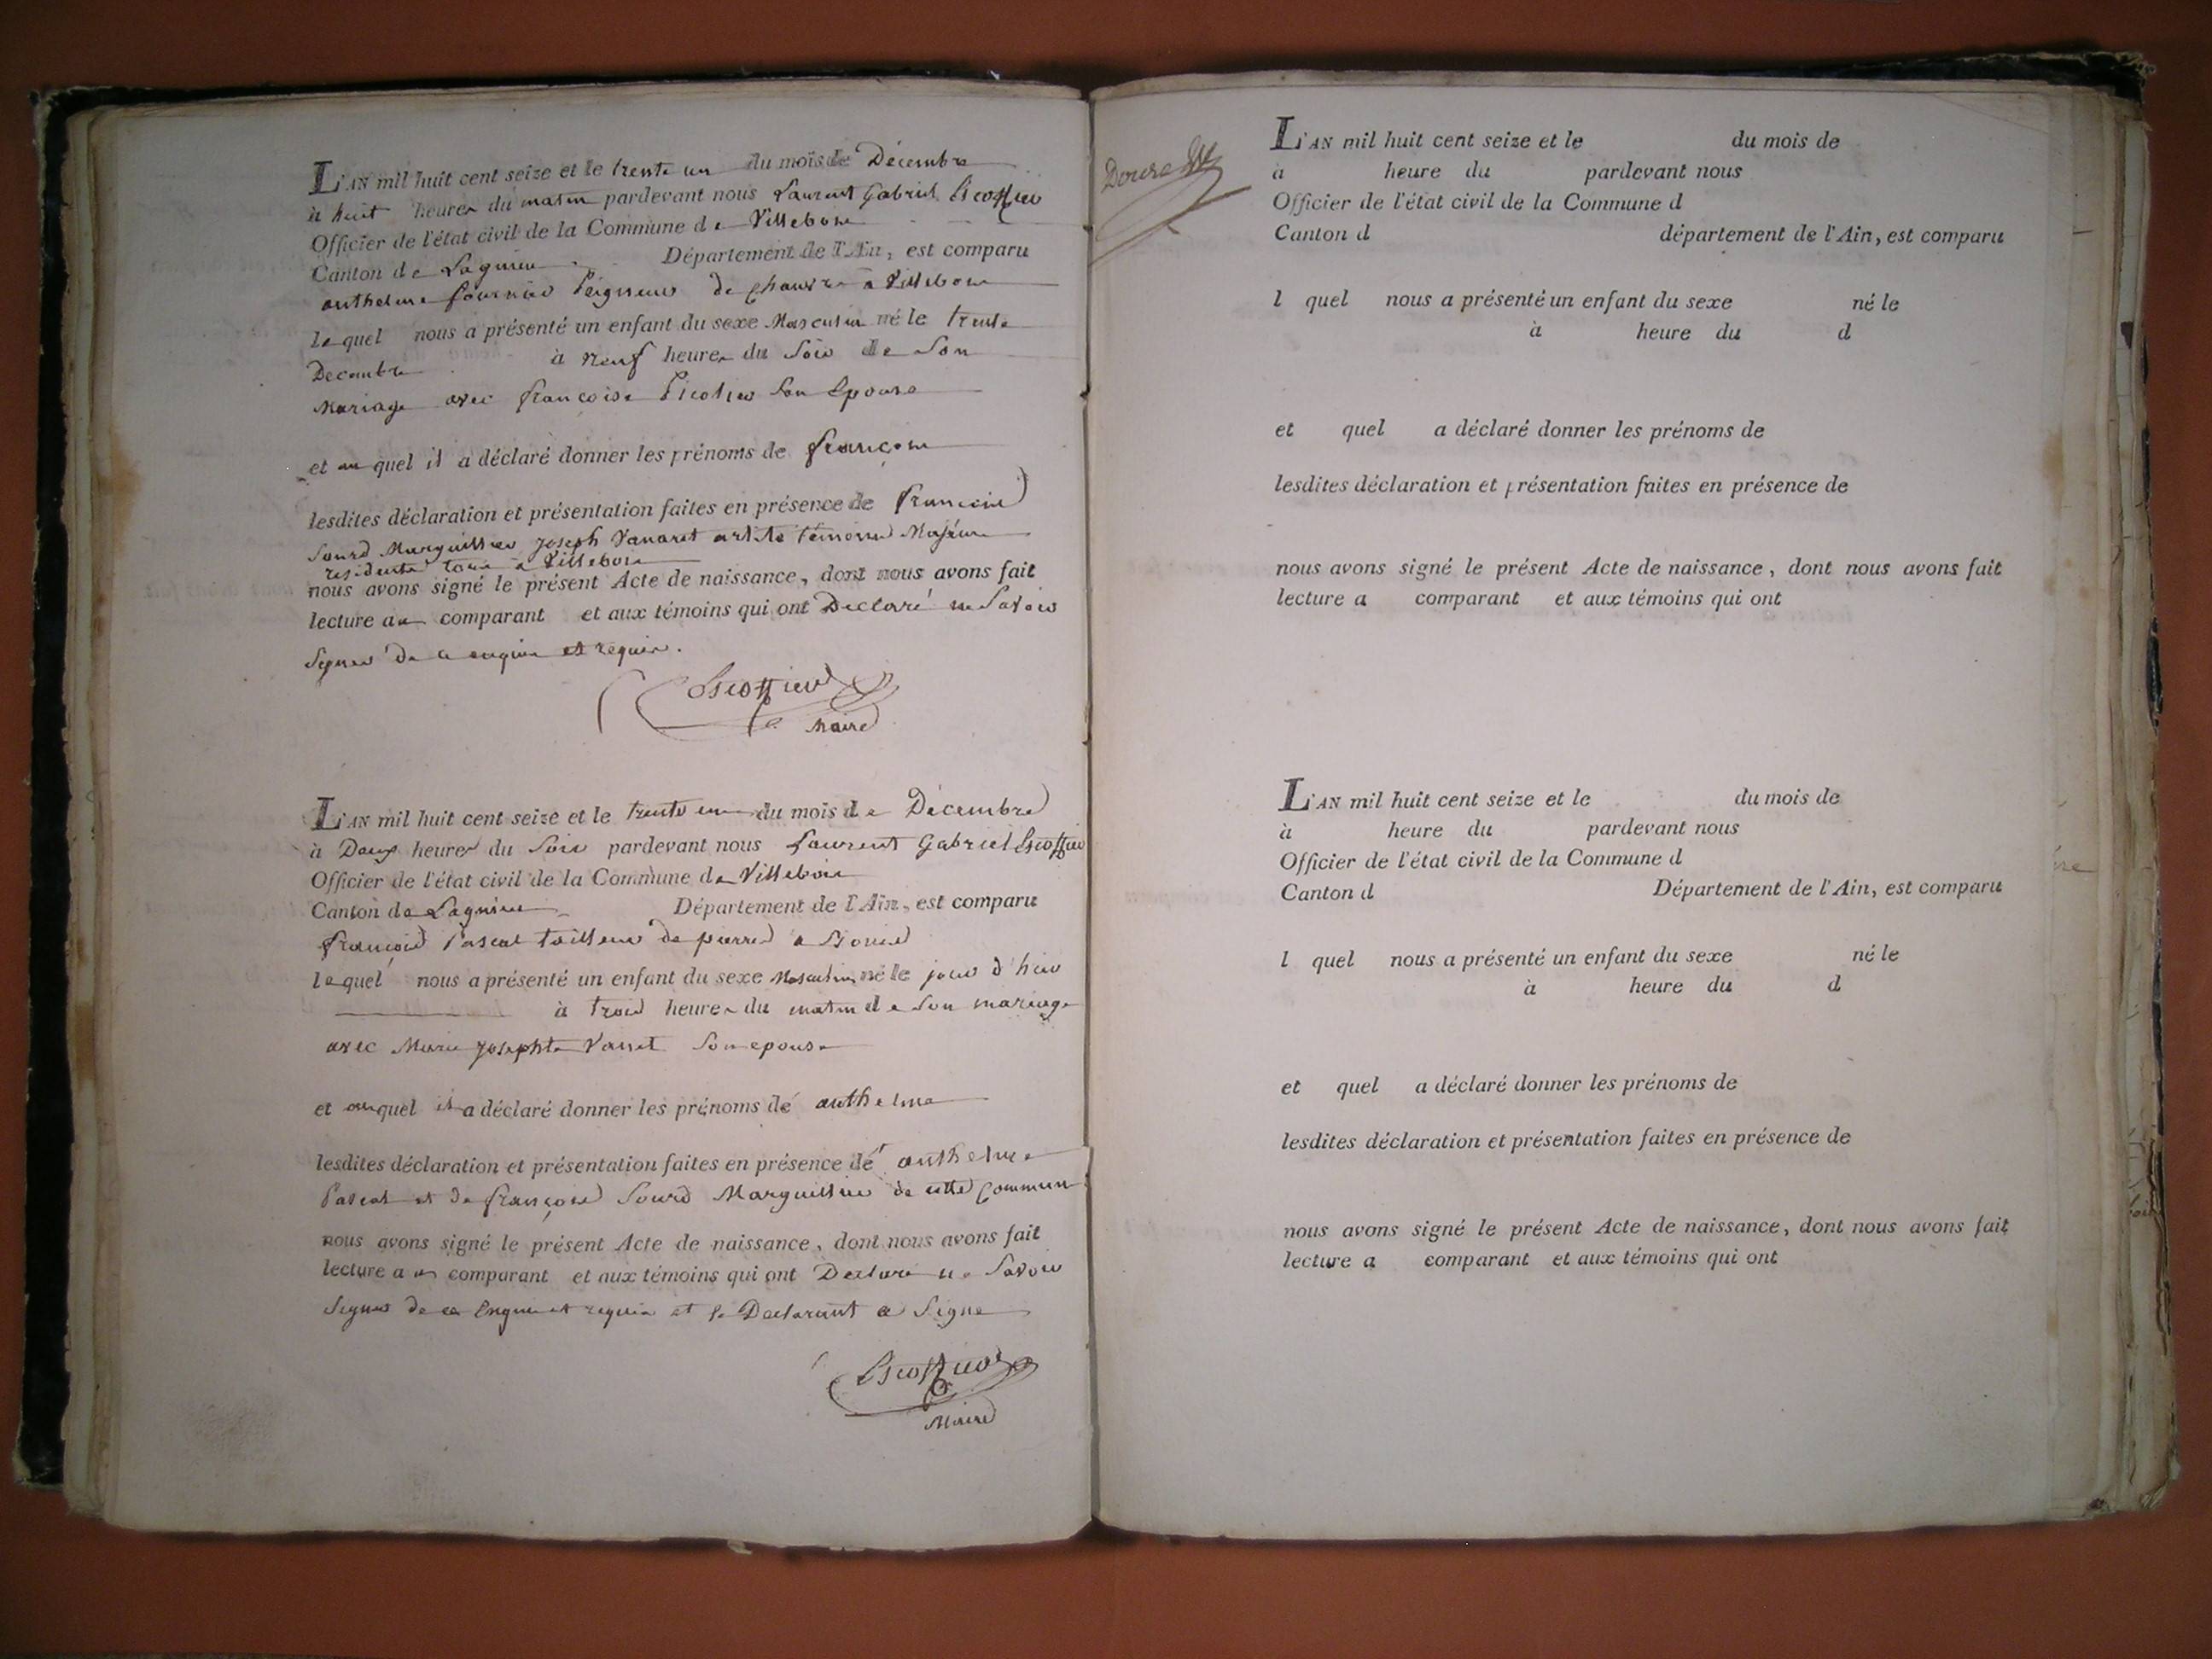 L'AN mil huit cent seize et le trente un du mois de Décembre
à huit heures du matin pardevant nous Laurent Gabriel Escoffier
Officier de l'état civil de la Commune de Villebois
Canton de Lagnieu Département de l'Ain, est comparu
anthelme fournier Peigneur de chanvre à Villebois
lequel nous a présenté un enfant du sexe Masculin né le trente
Decembre à neuf heures du Soir de Son
Mariage avec françoise Son Epouse
et au quel il a déclaré donner les prénoms de françois
lesdites déclaration et présentation faites en présence de francois
Sourd Marguillier Joseph Vanaret témoins Majeurs
residents tous à Villebois
nous avons signé le présent Acte de naissance, dont nous avons fait
lecture au comparant et aux témoins qui ont Declaré ne Savoir
Signer de ce enquis et requis.
Escoffier
Maire
L'AN mil huit cent seize et le trente un du mois de Décembre
à Deux heures du Soir pardevant nous Laurent Gabriel Escoffier
Officier de l'état civil de la Commune de Villebois
Canton de Lagnieu Département de l'Ain, est comparu
françois Pascal tailleur de pierre a
lequel nous a présenté un enfant du sexe Masculin né le jour d'hier
à trois heures du matin de Son mariage
avec Marie Josephte Son epouse
et auquel il a déclaré donner les prénoms de anthelme
lesdites déclaration et présentation faites en présence de anthelme
Pascal et de françois Sourd Marguillier de cette Commune
nous avons signé le présent Acte de naissance, dont nous avons fait
lecture au comparant et aux témoins qui ont Declaré ne Savoir
Signer de ce Enquis et requis et le Declarant a Signe
Escoffier
Maire
L'AN mil huit cent seize et le du mois de
à heure du pardevant nous
Officier de l'état civil de la Commune d
Canton d département de l'Ain, est comparu
l quel nous a présenté un enfant du sexe né le
à heure du d
et quel a déclaré donner les prénoms de
lesdites déclaration et présentation faites en présence de
nous avons signé le présent Acte de naissance, dont nous avons fait
lecture a comparant et aux témoins qui ont
L'AN mil huit cent seize et le du mois de
à heure du pardevant nous
Officier de l'état civil de la Commune d
Canton d Département de l'Ain, est comparu
l quel nous a présenté un enfant du sexe né le
à heure du d
et quel a déclaré donner les prénoms de
lesdites déclaration et présentation faites en présence de
nous avons signé le présent Acte de naissance, dont nous avons fait
lecture a comparant et aux témoins qui ont